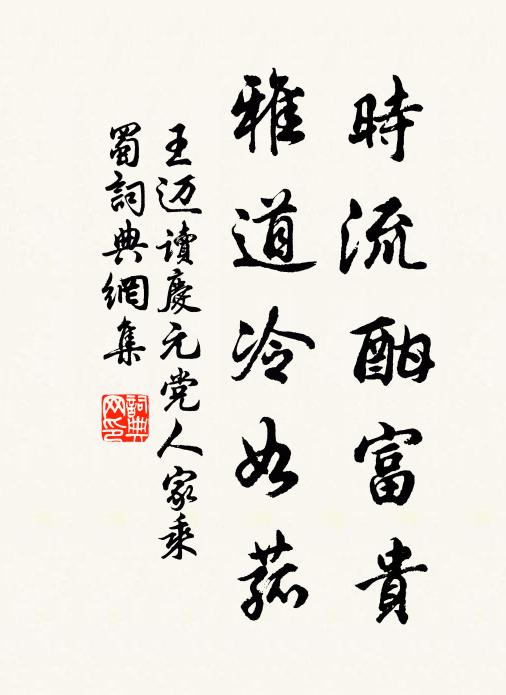 時流酣富貴
雅道冷如菰
王迈讀慶元党人家乘
蜀詞典網集
詞典
网印